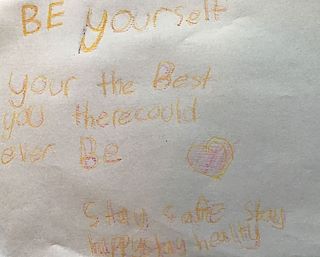 BE yourself
your the Best
you therecould
ever Be
Stay safte stay
happy stay healty